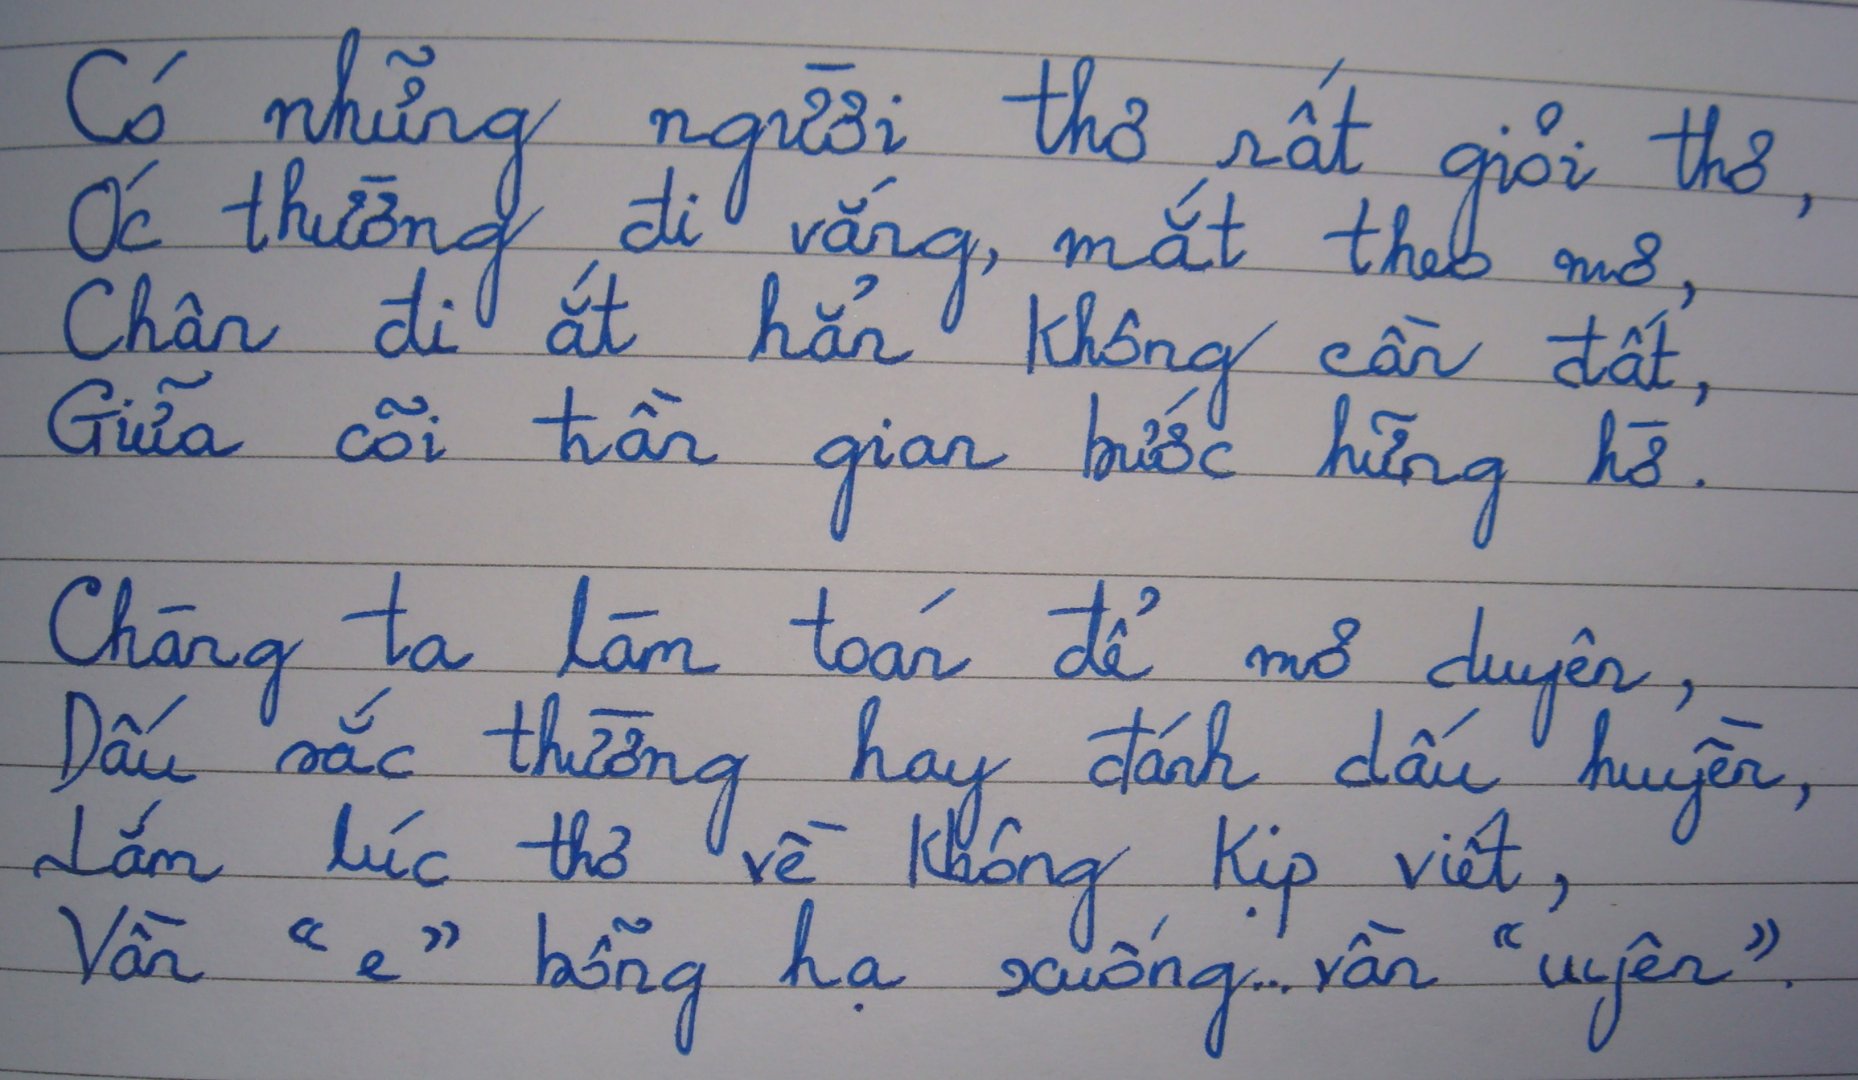 Có những người thơ rất giỏi thơ,
Óc thường đi vắng, mắt theo mơ,
Chân đi ắt hẳn không cần đất,
Giữa cõi trần gian bước hững hờ.
Chàng ta làm toán để mơ duyên,
Dấu sắc thường hay đánh dấu huyền,
Lắm lúc thơ về không kịp viết,
Vần “e” bỗng hạ xuống... vần “uyên”.